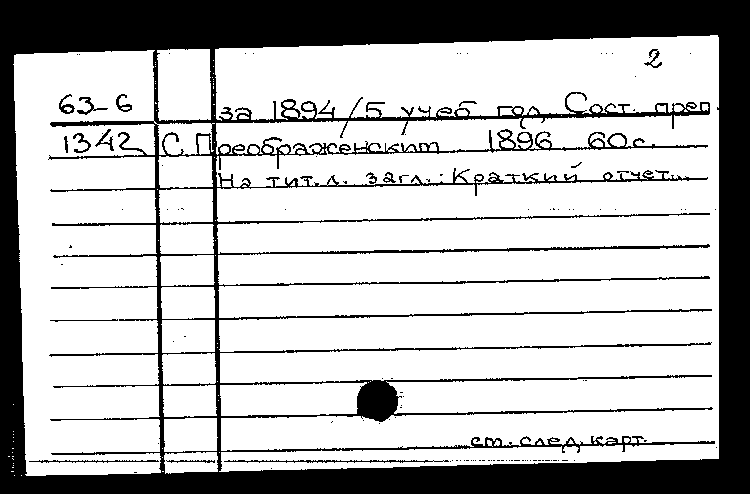 2
63-6 за 1894/5 учеб год, Сост. преп.
1342 С. Преображенский 1896 60 с.
На тит. л. загл.: Краткий отчет...
см. след. карт.